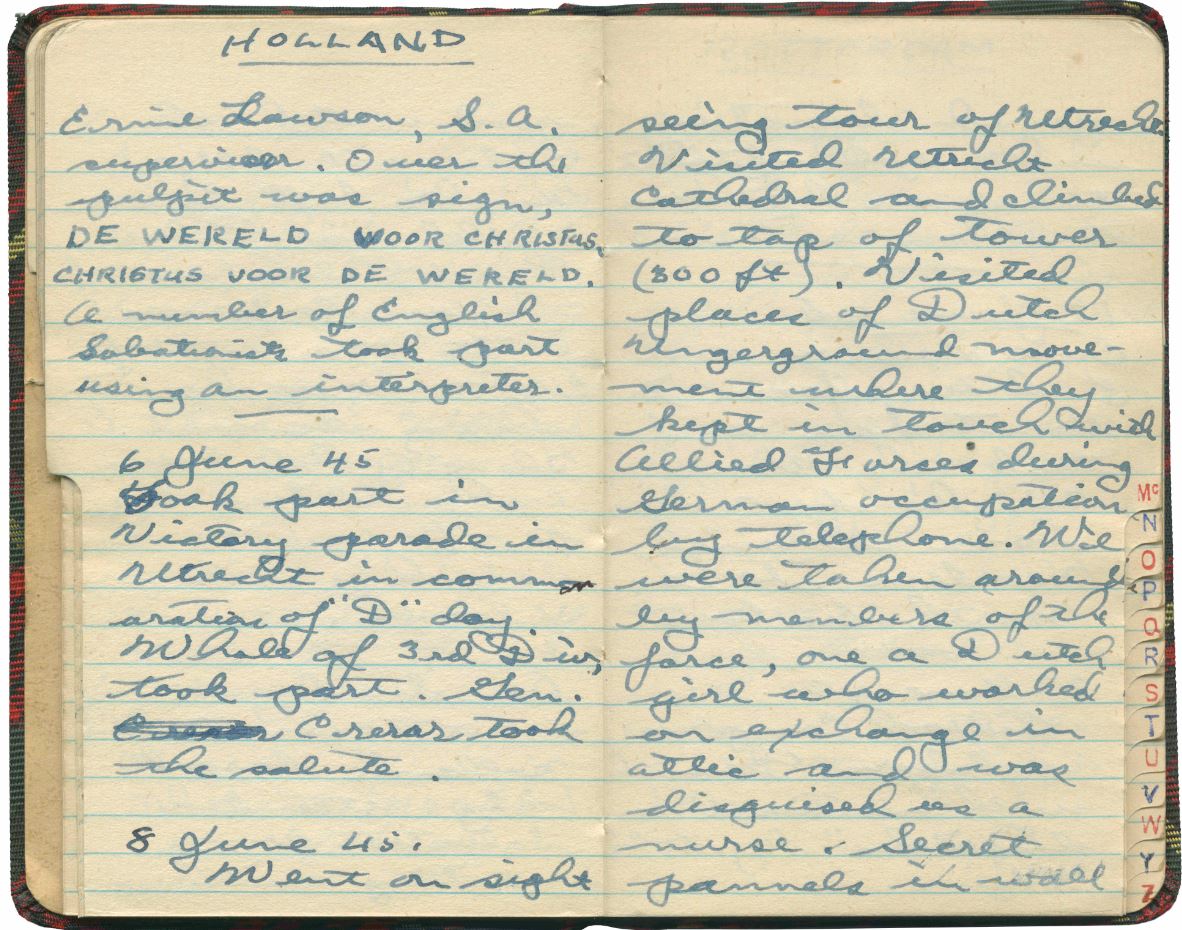 HOLLAND
Ernie Lawson, S.A.
supervisor. Over the
pulpit was sign,
DE WERELD VOOR CHRISTUS,
CHRISTUS VOOR DE WERELD.
A number of English
Salvationists took part
using an interpreter.
6 June 45
Took part in
Victory parade in
Utrecht in commem
aration of "D" day.
Whole of 3rd Div,
took part. Gen.
Crerar Crerar took
the salute.
8 June 45.
Went on sight
seeing tour of Utrecht.
Visited Utrecht
Cathedral and climbed
to top of tower
(300 ft). Visited
places of Dutch
Ungerground move-
ment where they
kept in touch with
Allied Forses during
German occupation
by telephone. We
were taken around
by members of the
force, one a Dutch
girl who worked
on exchange in
attic and was
disguised as a
nurse. Secret
pannels in wall
Mc
N
O
P
Q
R
S
T
U
V
W
Y
Z